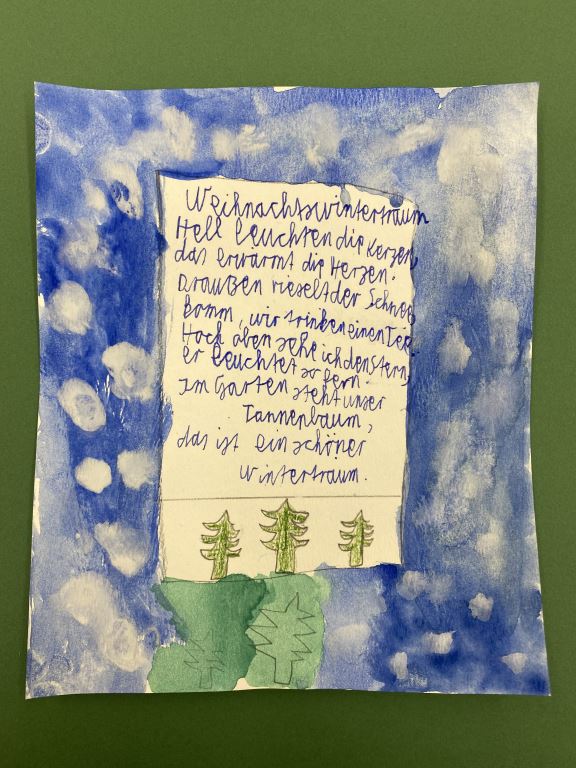 Weihnachtswintertraum
Hell leuchten die Kerzen,
das erwärmt die Herzen.
Draußen rieselt der Schnee
komm, wir trinken einen Tee.
Hoch oben sehe ich den Stern,
er leuchtet so fern.
Im Garten steht unser
Tannenbaum,
das ist ein schöner
Wintertraum.